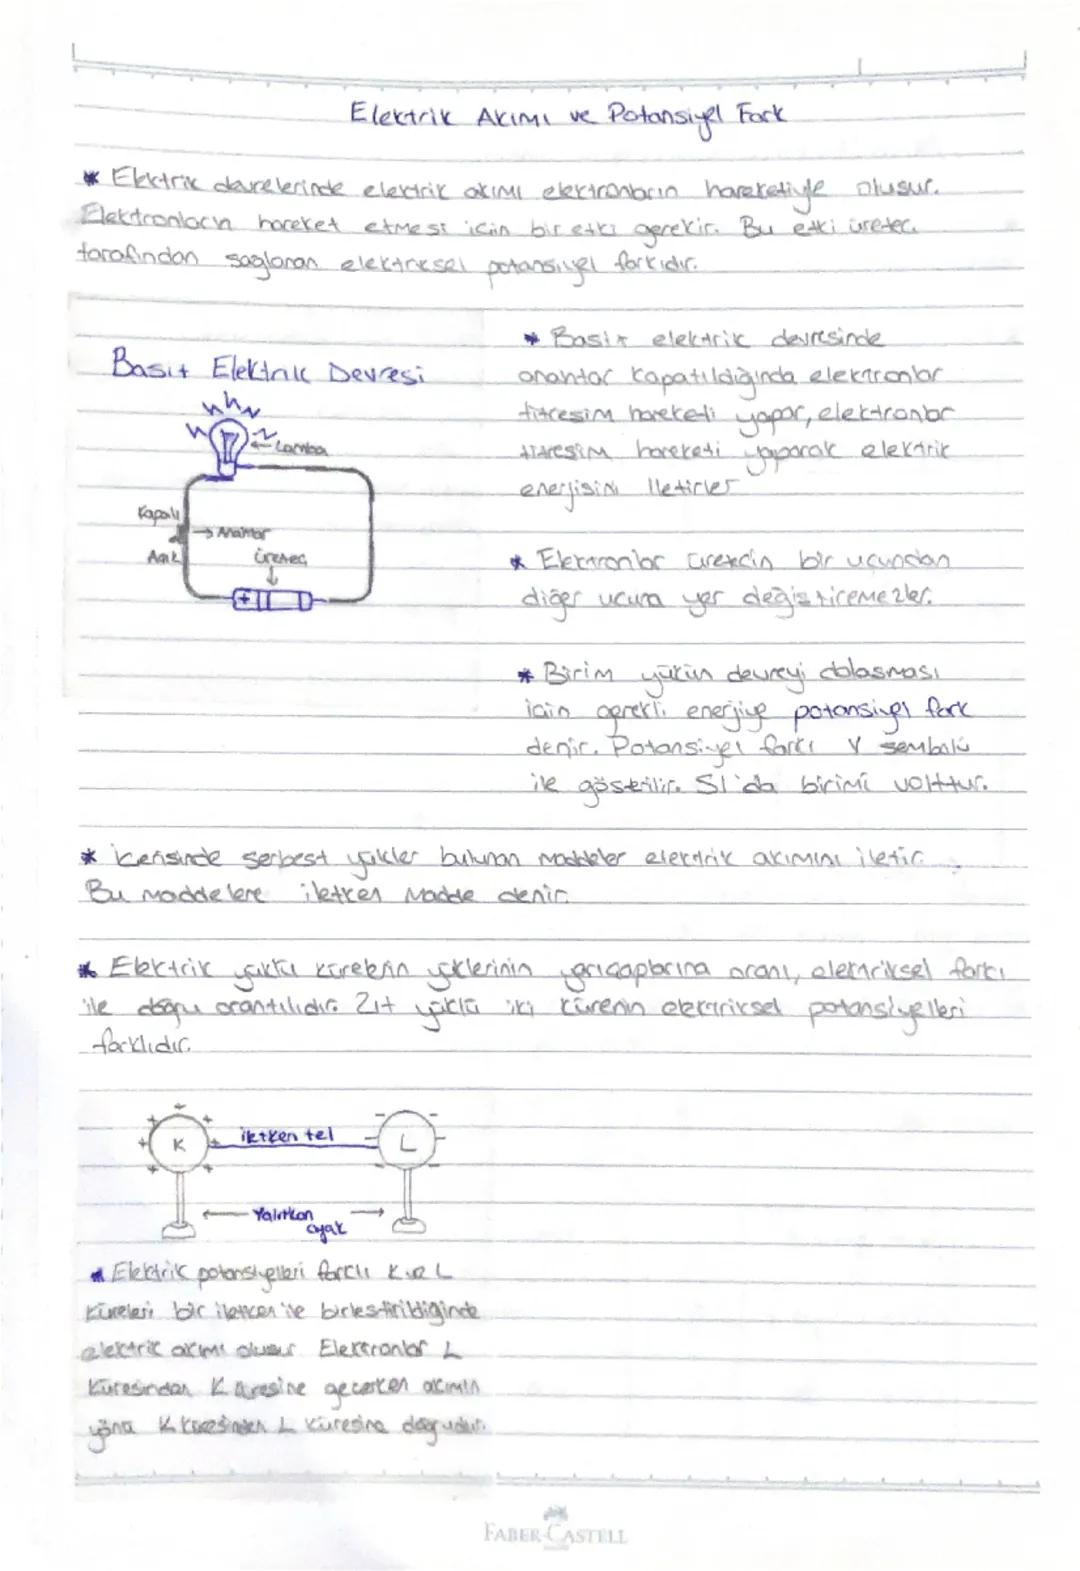 Elektrik Akımı ve Potansiyel Fark
* Elektrik devrelerinde elektrik akımı elektronların hareketiyle oluşur.
Elektronların hareket etmesi için bir etki gerekir. Bu etki üreteç
tarafından sağlanan elektriksel potansiyel farkıdır.
Basit Elektrik Devresi
Lamba
Kapalı
→ Anahtar
Açık
üreteç
+
* Basit elektrik devresinde
anahtar kapatıldığında elektronlar
titreşim hareketi yapar, elektronlar
titreşim hareketi yaparak elektrik
enerjisini iletirler
* Elektronlar üretecin bir ucundan
diğer ucuna yer değiştiremezler.
* Birim yükün devreyi dolaşması
için gerekli enerjiye potansiyel fark
denir. Potansiyel farkı V sembolü
ile gösterilir. SI'da birimi volttur.
* içerisinde serbest yükler bulunan maddeler elektrik akımını iletir.
Bu maddelere iletken madde denir.
* Elektrik yüklü kürelerin yüklerinin yarıçaplarına oranı, elektriksel farkı
ile doğru orantılıdır. Zıt yüklü iki kürenin elektriksel potansiyelleri
farklıdır.
K iletken tel L
← Yalıtkan →
ayak
* Elektrik potansiyelleri farklı K ve L
küreleri bir iletken ile birleştirildiğinde
elektrik akımı oluşur Elektronlar L
Küresinden K küresine geçerken akımın
yönü K küresinden L küresine doğrudur.
FABER-CASTELL